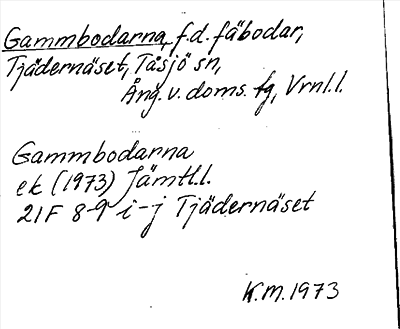 Gammbodarna, f.d. fäbodar,
Tjädernäset, Tåsjö sn,
Ång. v. doms. fg, Vrnl.l.
Gammbodarna
ek (1973) Jämtl.l.
21F 8-9 i-j Tjädernäset
K.M. 1973